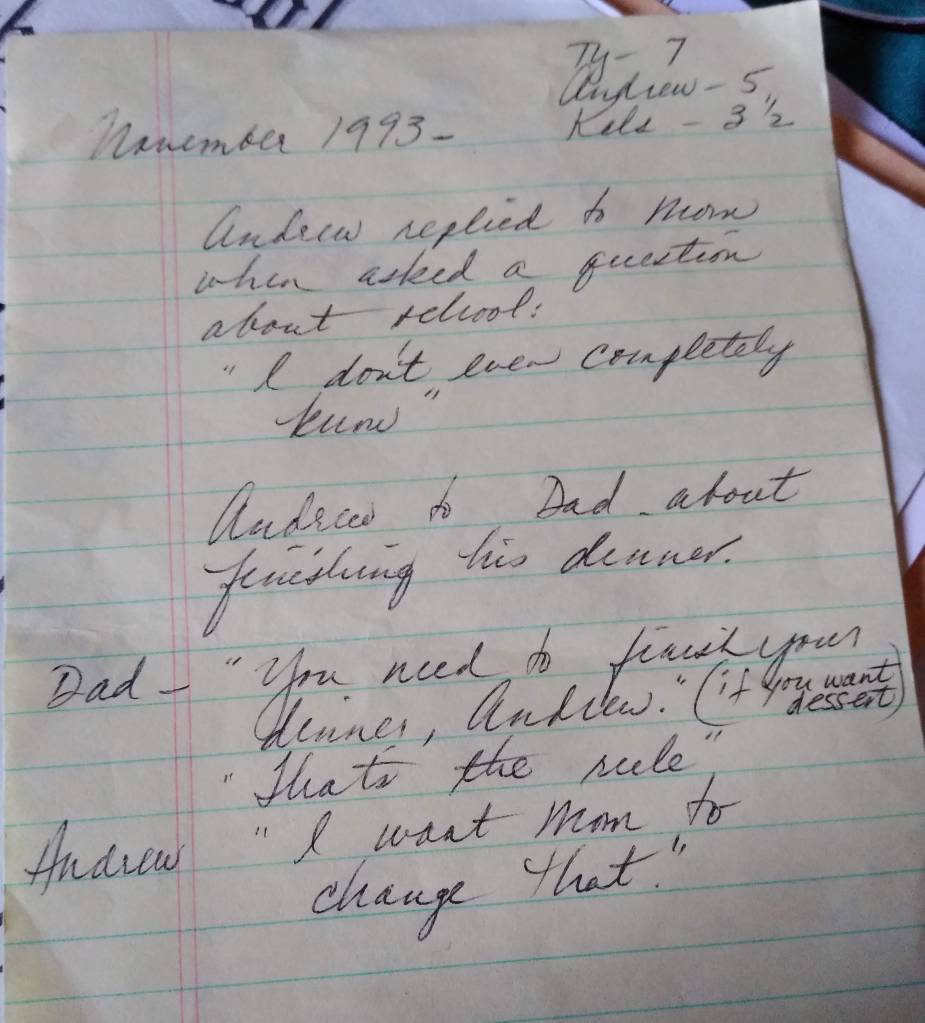 Ty - 7
Andrew - 5
Kels - 3 1/2
November 1993 -
Andrew replied to Mom
when asked a question
about school:
"I don't even completely
know"
Andrew to Dad - about
finishing his dinner.
Dad - "You need to finish your
dinner, Andrew." (if you want
dessert)
"That's the rule"
Andrew "I want Mom to
change that."